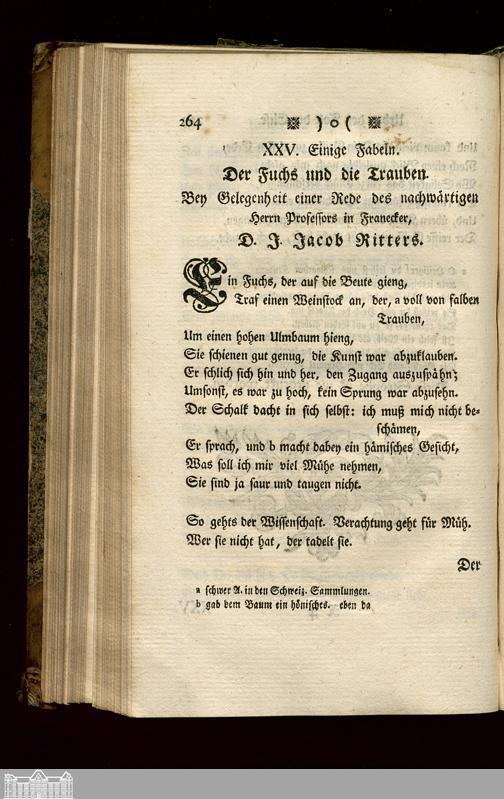 264 ) o (
XXV. Einige Fabeln.
Der Fuchs und die Trauben.
Bey Gelegenheit einer Rede des nachwärtigen
Herrn Professors in Franecker,
D. J. Jacob Ritters.
Ein Fuchs, der auf die Beute gieng,
Traf einen Weinstock an, der, a voll von falben
Trauben,
Um einen hohen Ulmbaum hieng,
Sie schienen gut genug, die Kunst war abzuklauben.
Er schlich sich hin und her, den Zugang auszuspähn;
Umsonst, es war zu hoch, kein Sprung war abzusehn.
Der Schalk dacht in sich selbst: ich muß mich nicht be-
schämen,
Er sprach, und b macht dabey ein hämisches Gesicht,
Was soll ich mir viel Mühe nehmen,
Sie sind ja saur und taugen nicht.
So gehts der Wissenschaft. Verachtung geht für Müh.
Wer sie nicht hat, der tadelt sie.
Der
a schwer A. in den Schweiz. Sammlungen.
b gab dem Baum ein hönisches. eben da